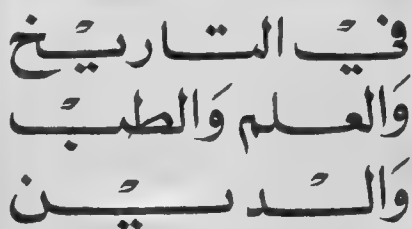 فيْ التاريْخ
وَالعلم وَالطبْ
وَالديْن